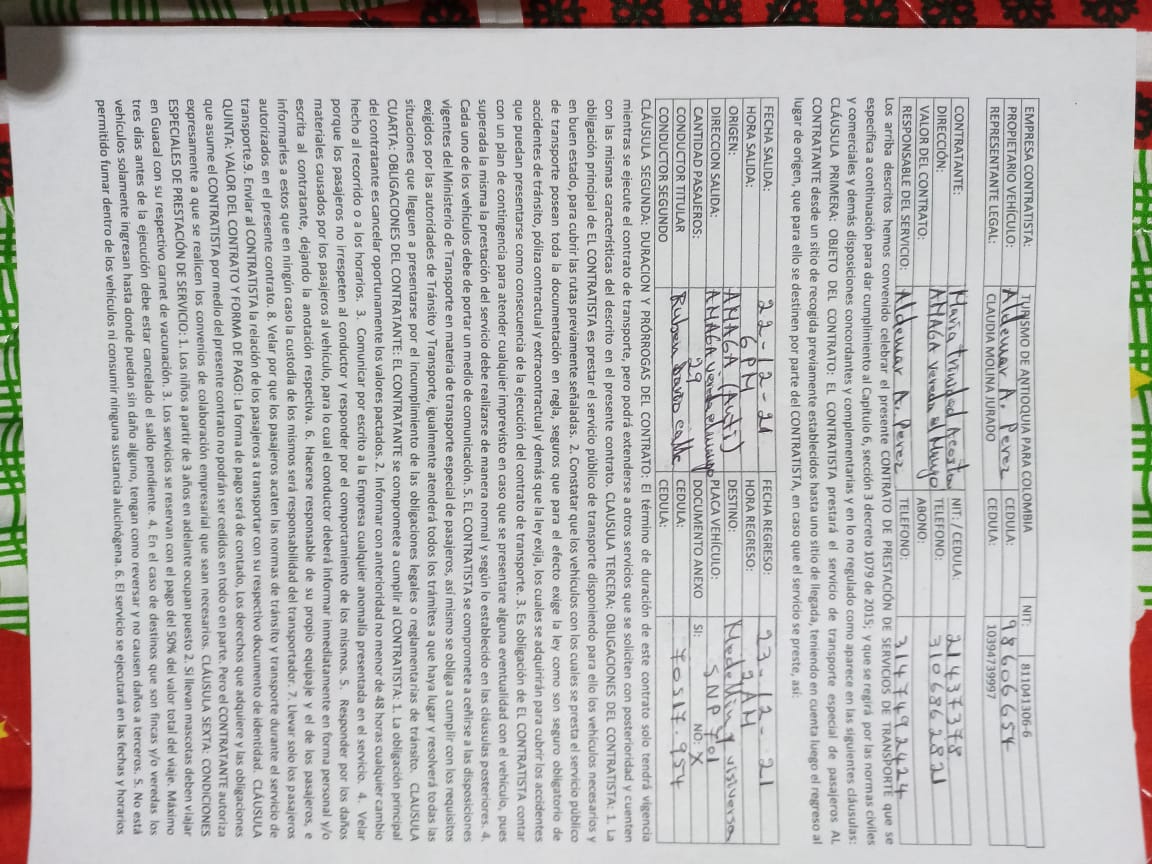 EMPRESA CONTRATISTA: TURISMO DE ANTIOQUIA PARA COLOMBIA NIT: 811041306-6
PROPIETARIO VEHÍCULO: Aldemar A. Perez CEDULA: 98606654
REPRESENTANTE LEGAL: CLAUDIA MOLINA JURADO CEDULA: 1039473997
CONTRATANTE: Maria Trinidad Acosta NIT: / CEDULA: 21437378
DIRECCIÓN: AMAGA vereda el Mango TELEFONO: 3106862821
VALOR DEL CONTRATO: ABONO:
RESPONSABLE DEL SERVICIO: Aldemar A. Perez TELEFONO: 3147492424
Los arriba descritos hemos convenido celebrar el presente CONTRATO DE PRESTACIÓN DE SERVICIOS DE TRANSPORTE que se
específica a continuación para dar cumplimiento al Capítulo 6, sección 3 decreto 1079 de 2015; y que se regirá por las normas civiles
y comerciales y demás disposiciones concordantes y complementarias y en lo no regulado como aparece en las siguientes cláusulas:
CLÁUSULA PRIMERA: OBJETO DEL CONTRATO: EL CONTRATISTA prestará el servicio de transporte especial de pasajeros AL
CONTRATANTE desde un sitio de recogida previamente establecidos hasta uno sitio de llegada, teniendo en cuenta luego el regreso al
lugar de origen, que para ello se destinen por parte del CONTRATISTA, en caso que el servicio se preste, así:
FECHA SALIDA: 22-12-21 FECHA REGRESO: 23-12-21
HORA SALIDA: 6 PM HORA REGRESO: 2AM
ORIGEN: AMAGA (Anti) DESTINO: Medellin y visiversa
DIRECCION SALIDA: AMAGA vereda el mango PLACA VEHÍCULO: SNP 701
CANTIDAD PASAJEROS: 29 DOCUMENTO ANEXO SI: NO: X
CONDUCTOR TITULAR Ruben Dario calle CEDULA: 70517.954
CONDUCTOR SEGUNDO CEDULA:
CLÁUSULA SEGUNDA: DURACION Y PRÓRROGAS DEL CONTRATO: El término de duración de este contrato solo tendrá vigencia
mientras se ejecute el contrato de transporte, pero podrá extenderse a otros servicios que se soliciten con posterioridad y cuenten
con las mismas características del descrito en el presente contrato. CLAUSULA TERCERA: OBLIGACIONES DEL CONTRATISTA: 1. La
obligación principal de EL CONTRATISTA es prestar el servicio público de transporte disponiendo para ello los vehículos necesarios y
en buen estado, para cubrir las rutas previamente señaladas. 2. Constatar que los vehículos con los cuales se presta el servicio público
de transporte posean toda la documentación en regla, seguros que para el efecto exige la ley como son seguro obligatorio de
accidentes de tránsito, póliza contractual y extracontractual y demás que la ley exija, los cuales se adquirirán para cubrir los accidentes
que puedan presentarse como consecuencia de la ejecución del contrato de transporte. 3. Es obligación de EL CONTRATISTA contar
con un plan de contingencia para atender cualquier imprevisto en caso que se presentare alguna eventualidad con el vehículo, pues
superada la misma la prestación del servicio debe realizarse de manera normal y según lo establecido en las cláusulas posteriores. 4.
Cada uno de los vehículos debe de portar un medio de comunicación. 5. EL CONTRATISTA se compromete a ceñirse a las disposiciones
vigentes del Ministerio de Transporte en materia de transporte especial de pasajeros, así mismo se obliga a cumplir con los requisitos
exigidos por las autoridades de Tránsito y Transporte, igualmente atenderá todos los trámites a que haya lugar y resolverá todas las
situaciones que lleguen a presentarse por el incumplimiento de las obligaciones legales o reglamentarias de tránsito. CLAUSULA
CUARTA: OBLIGACIONES DEL CONTRATANTE: EL CONTRATANTE se compromete a cumplir al CONTRATISTA: 1. La obligación principal
del contratante es cancelar oportunamente los valores pactados. 2. Informar con anterioridad no menor de 48 horas cualquier cambio
hecho al recorrido o a los horarios. 3. Comunicar por escrito a la Empresa cualquier anomalía presentada en el servicio. 4. Velar
porque los pasajeros no irrespeten al conductor y responder por el comportamiento de los mismos. 5. Responder por los daños
materiales causados por los pasajeros al vehículo, para lo cual el conductor deberá informar inmediatamente en forma personal y/o
escrita al contratante, dejando la anotación respectiva. 6. Hacerse responsable de su propio equipaje y el de los pasajeros, e
informarles a estos que en ningún caso la custodia de los mismos será responsabilidad del transportador. 7. Llevar solo los pasajeros
autorizados en el presente contrato. 8. Velar por que los pasajeros acaten las normas de tránsito y transporte durante el servicio de
transporte.9. Enviar al CONTRATISTA la relación de los pasajeros a transportar con su respectivo documento de identidad. CLÁUSULA
QUINTA: VALOR DEL CONTRATO Y FORMA DE PAGO: La forma de pago será de contado, Los derechos que adquiere y las obligaciones
que asume el CONTRATISTA por medio del presente contrato no podrán ser cedidos en todo o en parte. Pero el CONTRATANTE autoriza
expresamente a que se realicen los convenios de colaboración empresarial que sean necesarios. CLÁUSULA SEXTA: CONDICIONES
ESPECIALES DE PRESTACIÓN DE SERVICIO: 1. Los niños a partir de 3 años en adelante ocupan puesto 2. Si llevan mascotas deben viajar
en Guacal con su respectivo carnet de vacunación. 3. Los servicios se reservan con el pago del 50% del valor total del viaje. Máximo
tres días antes de la ejecución debe estar cancelado el saldo pendiente. 4. En el caso de destinos que son fincas y/o veredas los
vehículos solamente ingresan hasta donde puedan sin daño alguno, tengan como reversar y no causen daños a terceros. 5. No está
permitido fumar dentro de los vehículos ni consumir ninguna sustancia alucinógena. 6. El servicio se ejecutará en las fechas y horarios